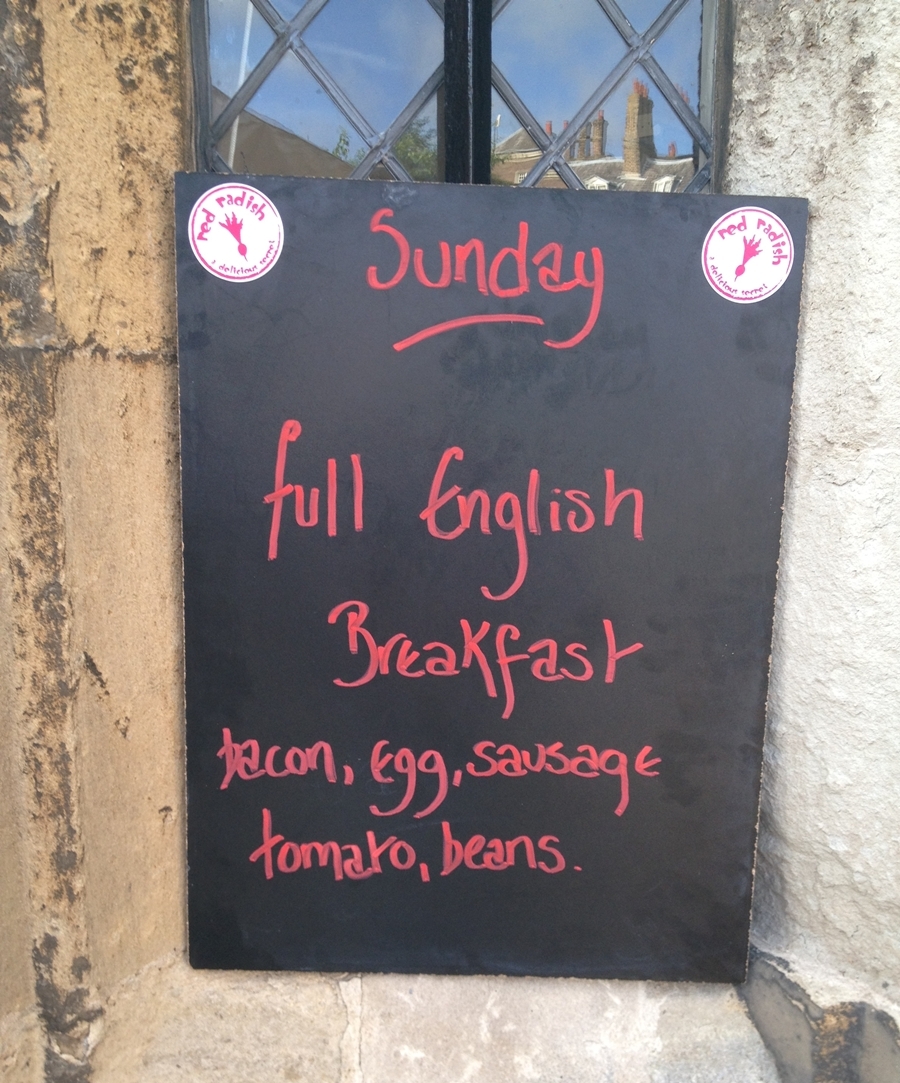 red radish
a delicious secret
red radish
a delicious secret
Sunday
full English
Breakfast
bacon, egg, sausage
tomato, beans.